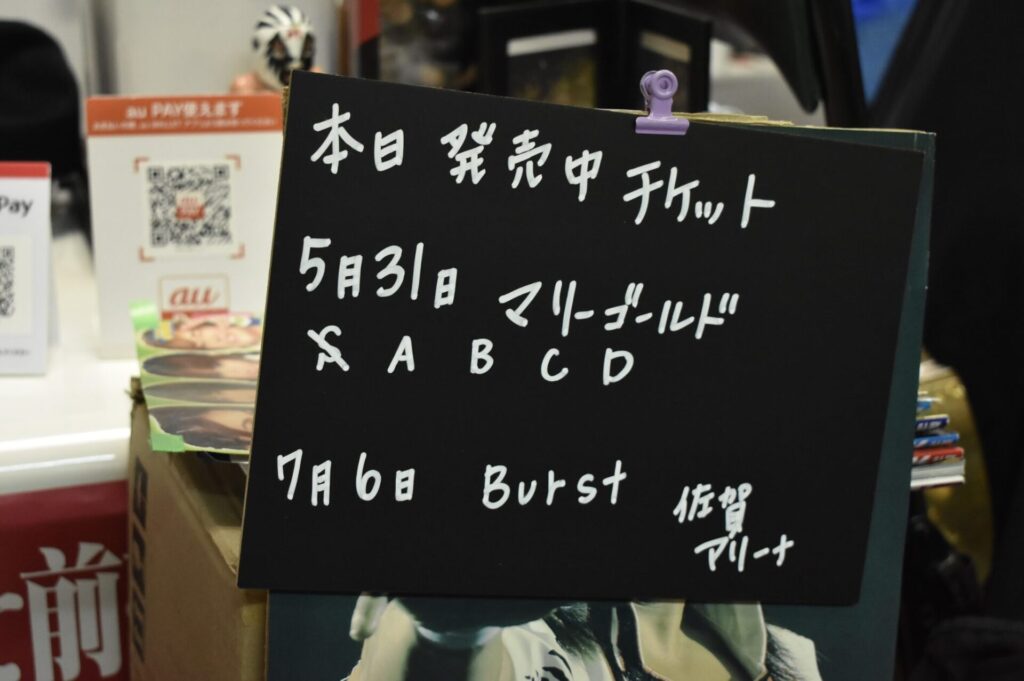 au PAY使えます
au
Pay
本日 発売中 チケット
5月31日 マリーゴールド
S A B C D
7月6日 Burst 佐賀
アリーナ
前